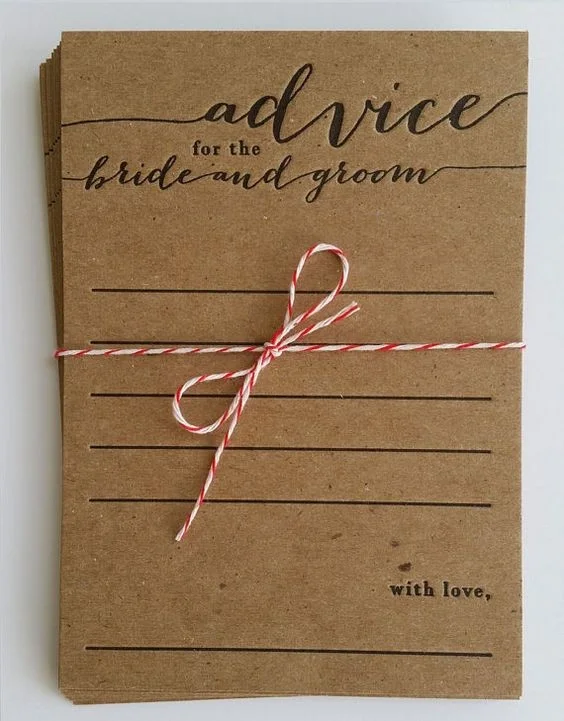 advice
for the
bride and groom
with love,